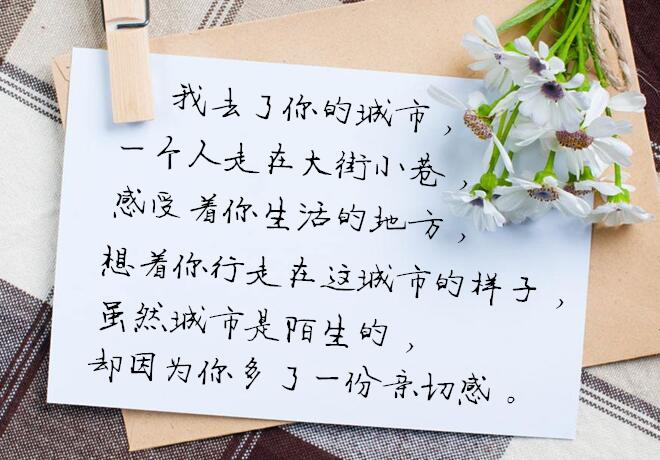 我去了你的城市，
一个人走在大街小巷，
感受着你生活的地方，
想着你行走在这城市的样子，
虽然城市是陌生的，
却因为你多了一份亲切感。